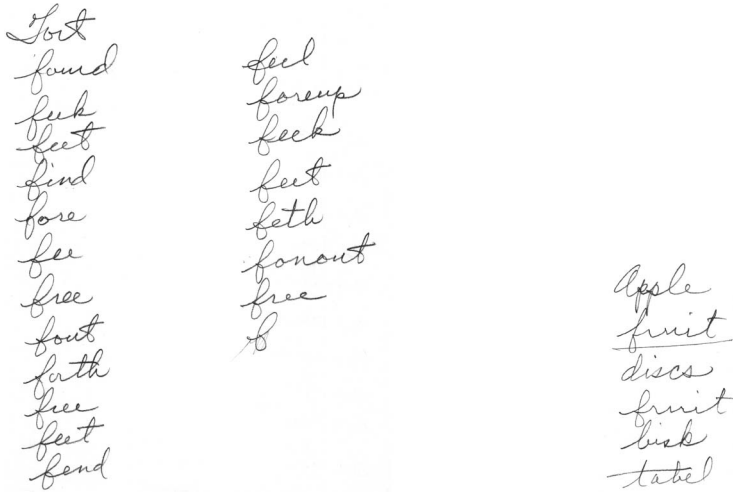 Fort
found
feek
feet
find
fore
fee
free
font
forth
free
feet
fend
feel
foreup
feek
feet
feth
fonout
free
f
Apple
fruit
discs
fruit
bisk
tabel